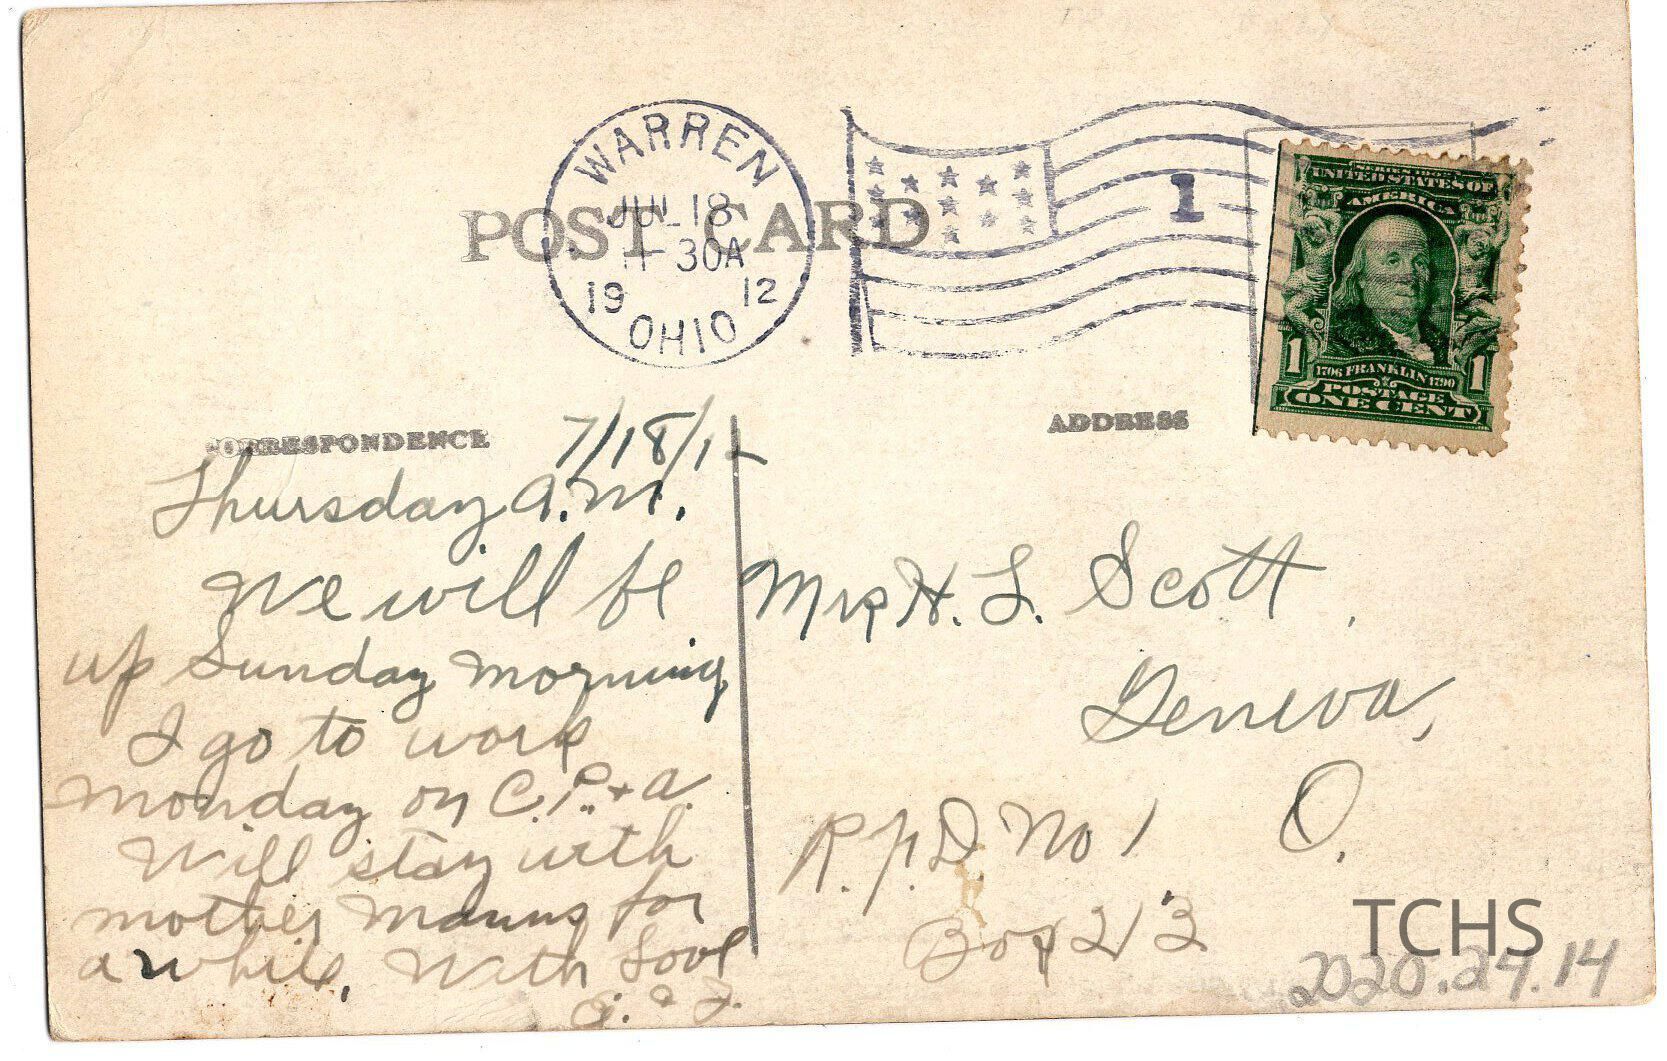 POST CARD
WARREN
JUL 18
11-30A
1912
OHIO
1
UNITED STATES OF
AMERICA
1 1
1706 FRANKLIN 1790
POSTAGE
ONE CENT
CORRESPONDENCE
7/18/12
Thursday a.m.
We will be
up Sunday morning
I go to work
monday on C.P. + A.
Will stay with
mother Manns for
a while. With Love
E. & F.
ADDRESS
Mrs H. L. Scott
Geneva,
O.
R.F.D No 1
Box 213
TCHS
2020.24.14